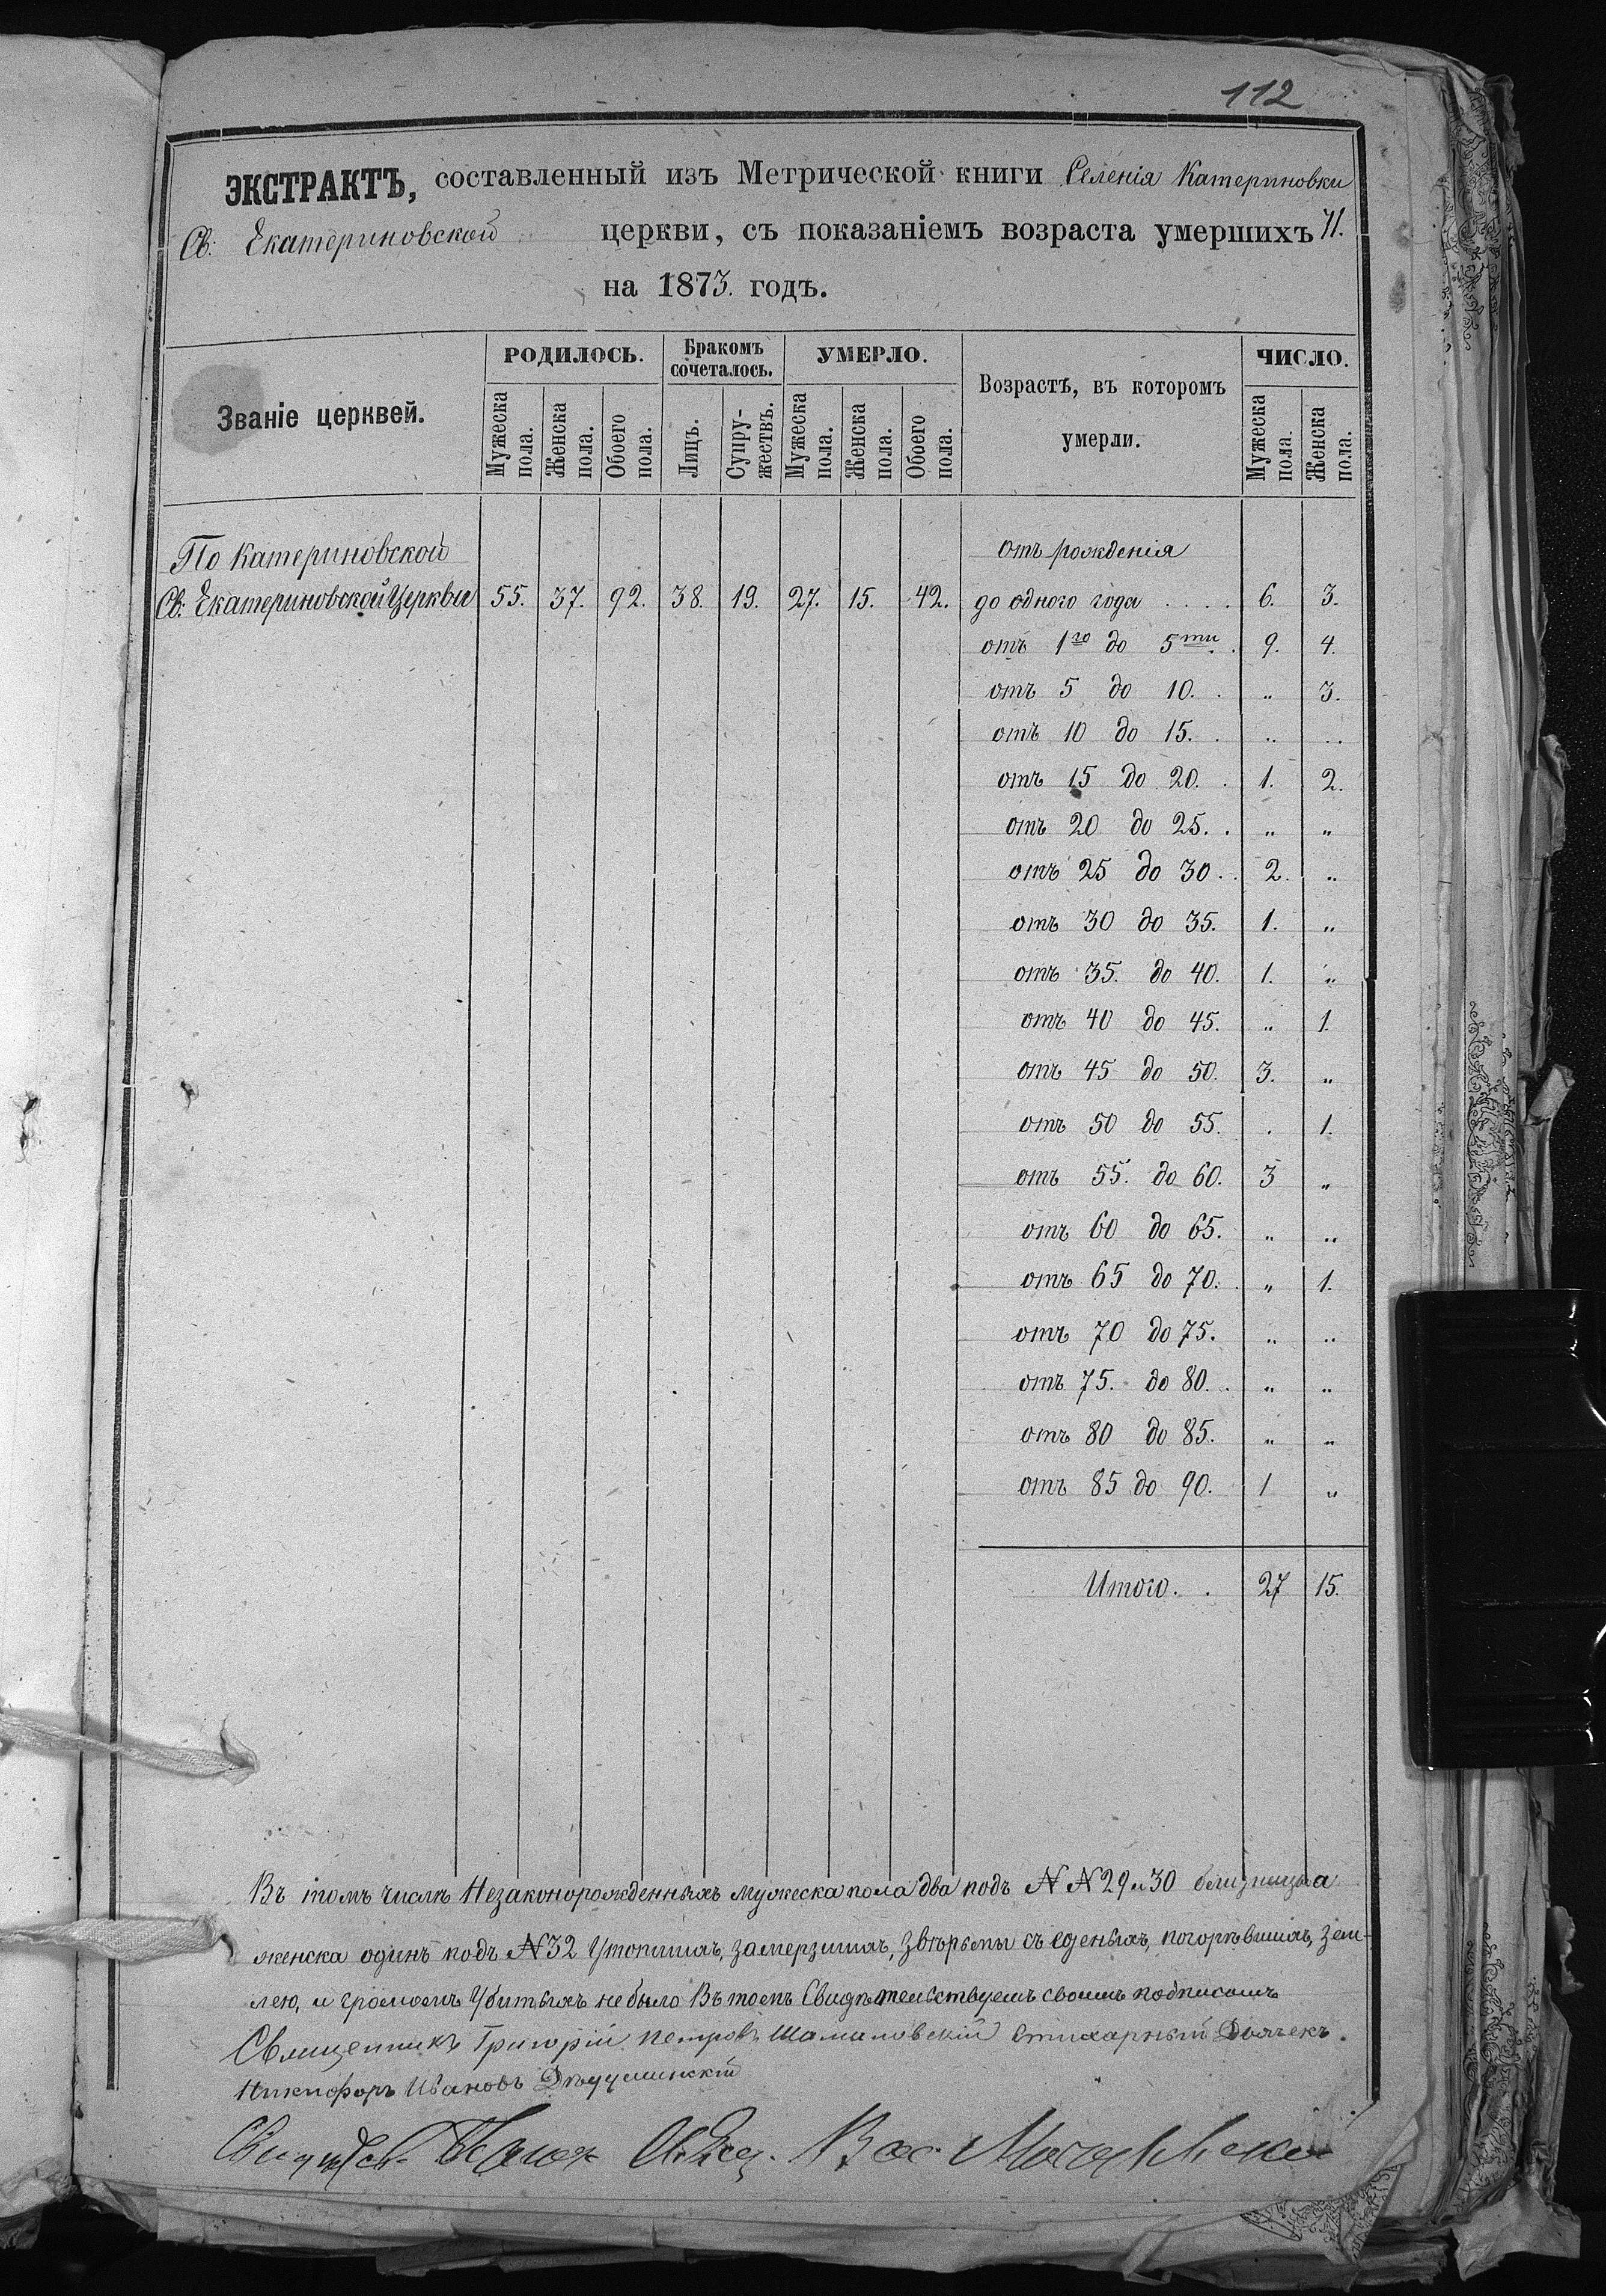 112
ЭКСТРАКТЪ, составленный изъ Метрической книги Селенія Катериновки
Св: Екатериновской церкви, съ показаніемъ возраста умершихъ
на 1873. годъ.
Званіе церквей. РОДИЛОСЬ. Бракомъ сочеталось. УМЕРЛО. Возрастъ, въ которомъ умерли. ЧИСЛО.
Мужеска пола. Женска пола. Обоего пола. Лицъ. Супружествъ. Мужеска пола. Женска пола. Обоего пола. Мужеска пола. Женска пола.
По Катериновской отъ рожденія
Св: Екатериновской Церкви 55. 37. 92. 38. 19. 27. 15. 42. до одного года . . . . 6. 3.
отъ 1го до 5ти . . 9. 4.
отъ 5 до 10. . „ 3.
отъ 10 до 15. . „ „
отъ 15 до 20. . 1. 2.
отъ 20 до 25. . „ „
отъ 25 до 30. . 2. „
отъ 30 до 35. 1. „
отъ 35. до 40. 1. „
отъ 40 до 45. „ 1.
отъ 45 до 50. 3. „
отъ 50 до 55. . 1.
отъ 55. до 60. 3 „
отъ 60 до 65. „ „
отъ 65 до 70. . „ 1.
отъ 70 до 75. „ „
отъ 75. до 80. . „ „
отъ 80 до 85. „ „
отъ 85 до 90. 1 „
Итого. . 27 15.
Въ томъ числѣ Незаконорожденныхъ мужеска пола два подъ N N 29 и 30 близницы а
женска одинъ подъ N 32 Утопшихъ, замерзшихъ, звѣрьми съеденыхъ, погорѣвшихъ, зем-
лею, и громомъ Убитыхъ не было Въ томъ Свидѣтельствуемъ своимъ подписомъ
Священникъ Григорій Петровъ Стихарный Дьячекъ.
Никифоръ Ивановъ